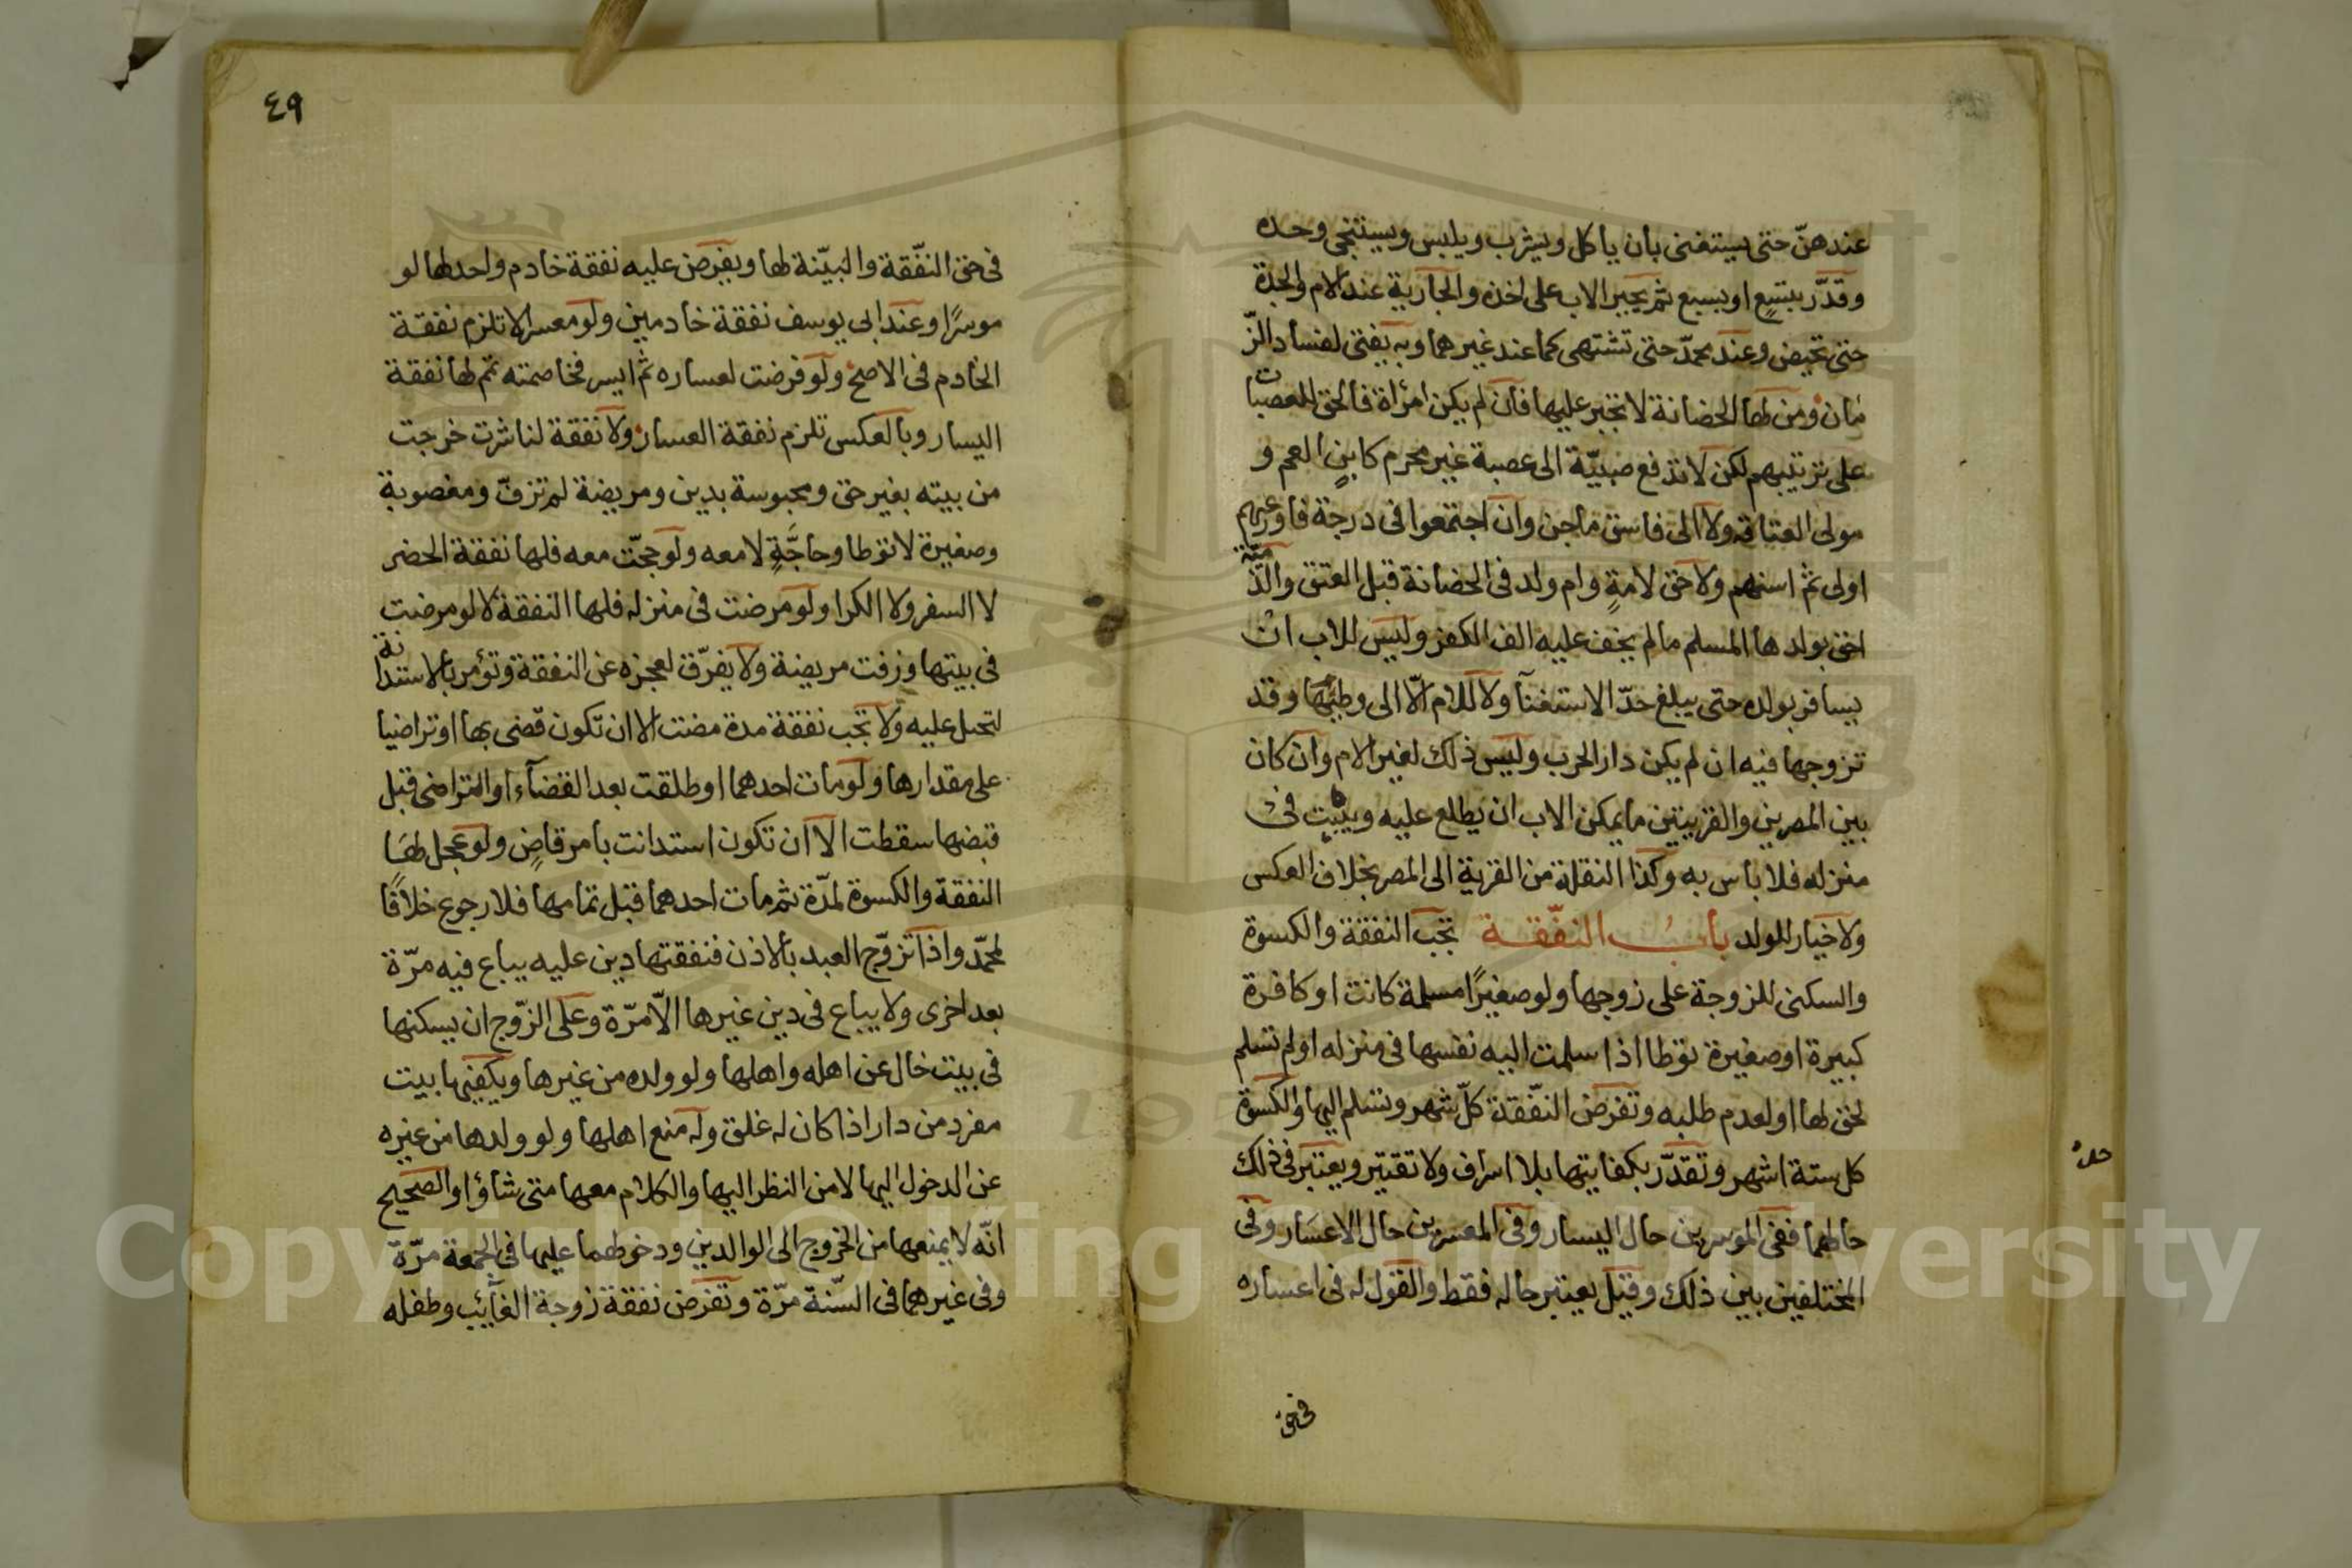 عندهنّ حتى يستغنى بأن يأكل ويشرب ويلبس ويستنجى وحده
وقدّر بتسعٍ او بسبع ثم يجبر الاب على اخذه والجارية عند الام والجدة
حتى تحيض وعند محمدّ حتى تشتهى كما عند غيرهما وبه يفتى لفساد الزّ
مان ومن لها الحضانة لا تجبر عليها فأن لم يكن امرأة فالحق للعصبات
على ترتيبهم لكن لا تدفع صبيّة الى عصبة غير محرم كابن العم و
مولى العتاقه ولا الى فاسق ماجن وان اجتمعوا فى درجة فاورعهم
اولى ثم اسنهم ولا حق لامةٍ وام ولد فى الحضانة قبل العتق والذّميّة
احق بولدها المسلم مالم يخف عليه الف الكفر وليس للاب ان
يسافر بولده حتى يبلغ حدّ الاستغنآ ولا للام الّا الى وطنها وقد
تزوجها فيه ان لم يكن دار الحرب وليس ذلك لغير الام وان كان
بين المصرين والقريتين ما يمكن الاب ان يطلع عليه ويبيت فى
منزله فلا بأس به وكذا النقلة من القرية الى المصر بخلاف العكس
ولا خيار للولد بابُ النفّقة تجب النفقة والكسوة
والسكنى للزوجة على زوجها ولو صغيرًا مسلمة كانت او كافرة
كبيرة او صغيرة توطا اذا سلمت اليه نفسها فى منزله او لم تسلم
لحق لها او لعدم طلبه وتفرض النفّقة كلّ شهر وتسلم اليها والكسوة
كل ستة اشهر وتقدّر بكفايتها بلا اسراف ولا تقتير ويعتبر فى ذلك
حالهما ففى الموسرين حال اليسار وفى المعسرين حال الاعسار وفى
المختلفين بين ذلك وقيل يعتبر حاله فقط والقول له فى اعساره
فى حق
٤٩
فى حق النفّقة والبيّنة لها ويفرض عليه نفقة خادم واحد لها لو
موسرًا وعند ابى يوسف نفقة خادمين ولو معسرا لا تلزم نفقة
الخادم فى الاصح ولو فرضت لعساره ثم ايسر فخاصمته تمم لها نفقة
اليسار وبالعكس تلزم نفقة العسار ولا نفقة لناشزت خرجت
من بيته بغير حق ومحبوسة بدين ومريضة لم تزفّ ومغصوبة
وصغيرة لا توطا وحاجّةٍ لا معه ولو حجّت معه فلها نفقة الحضر
لا السفر ولا الكرا ولو مرضت فى منزله فلها النفقة لا لو مرضت
فى بيتها وزفت مريضة ولا يفرّق لعجزه عن النفقة وتؤمر بالاستدانة
لتحيل عليه ولا تجب نفقة مدة مضت الا ان تكون قضى بها او تراضيا
على مقدارها ولو مات احدهما او طلقت بعد القضآء او التراضى قبل
قبضها سقطت الا ان تكون استدانت بأمر قاضٍ ولو عجل لها
النفقة والكسوة لمدّة ثم مات احدهما قبل تمامها فلا رجوع خلافًا
لمحمّد واذا تزوّج العبد بألاذن فنفقتها دين عليه يباع فيه مرّة
بعد اخرى ولا يباع فى دين غيرها الاّ مرّة وعلى الزّوج ان يسكنها
فى بيت خال عن اهله واهلها ولو ولده من غيرها ويكفيها بيت
مفرد من دار اذا كان له غلق وله منع اهلها ولو ولدها من غيره
عن الدخول اليها لا من النظر اليها والكلام معها متى شاؤا والصحيح
انّه لا يمنعها من الخروج الى الوالدين ودخولهما عليها فى الجمعة مرّة
وفى غيرهما فى السّنة مرّة وتفرض نفقة زوجة الغآئب وطفله
Copyright © King Saud University